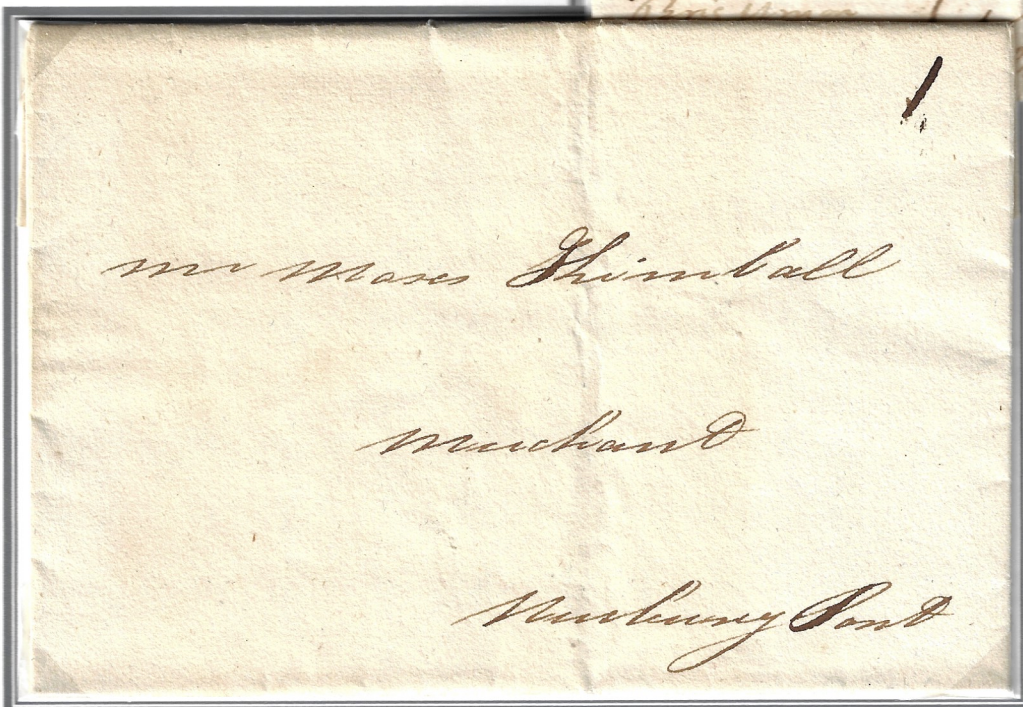 1
Mr Moses Kimball
Merchant
Newbury Port